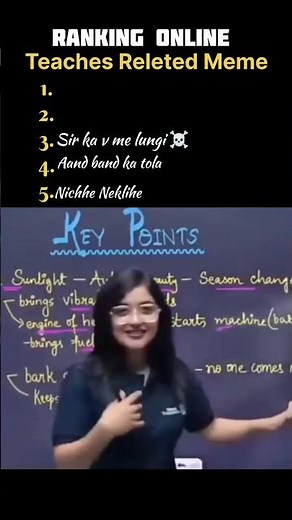 RANKING ONLINE
Teaches Releted Meme
1.
2.
3. Sir ka v me lungi ☠️
4. Aand band ka tola
5. Nichhe Neklihe
KEY POINTS
Sunlight — — Season change
brings
engine of starts machine
-brings fuel
bark - no one comes
keeps